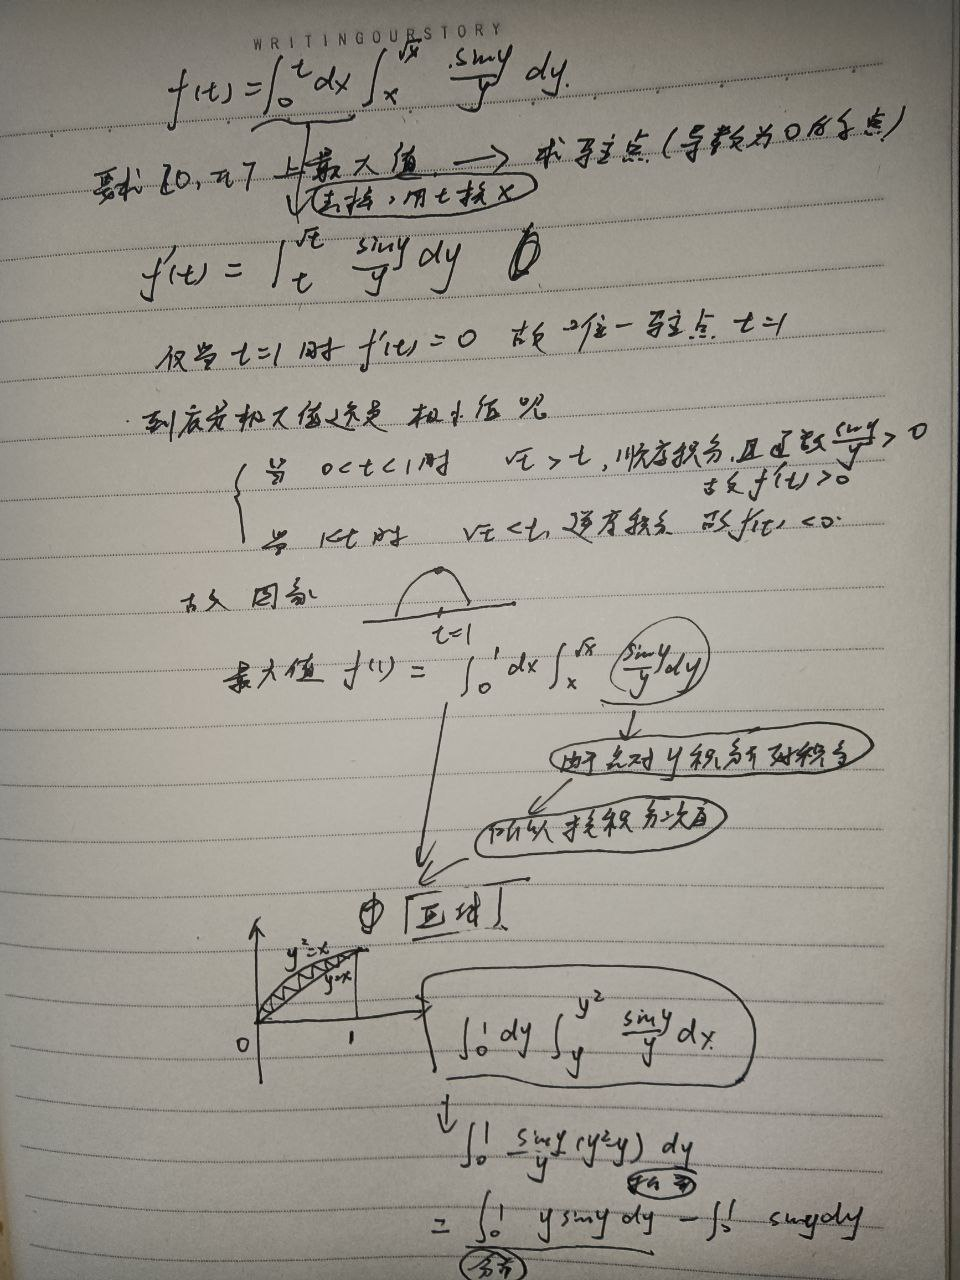 WRITINGOURSTORY
f(t) = ∫₀ᵗ dx ∫ₓ^√x siny/y dy.
要求 [0, π] 上最大值 → 求驻点 (导数为0的点)
去掉, 用t换x
f'(t) = ∫ₜ^√t siny/y dy
仅当 t=1 时 f'(t) = 0 故 唯一驻点 t=1
到底是极大值还是 极小值呢
当 0<t<1 时 √t > t, 顺序积分, 且函数 siny/y > 0
故 f'(t) > 0
当 1<t 时 √t < t, 逆序积分 故 f'(t) < 0.
故 图象
t=1
最大值 f(1) = ∫₀¹ dx ∫ₓ^√x siny/y dy
由于先对 y 积分不好积分
所以 换积分次序
① 「区域」
y²=x
y=x
0 1
∫₀¹ dy ∫_y^y² siny/y dx.
∫₀¹ siny/y (y²-y) dy
= ∫₀¹ y siny dy - ∫₀¹ siny dy
分部